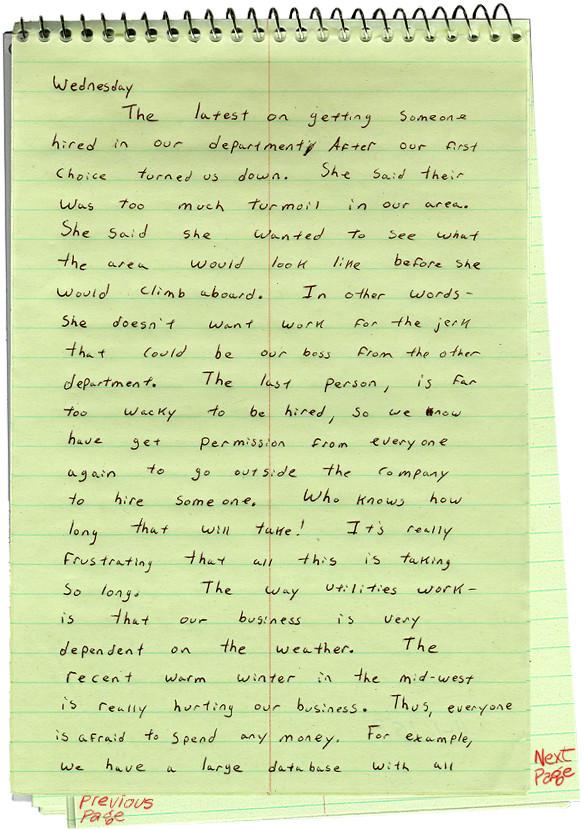 Wednesday
The latest on getting someone
hired in our department, After our first
choice turned us down. She said their
was too much turmoil in our area.
She said she wanted to see what
the area would look like before she
would climb aboard. In other words-
she doesn't want work for the jerk
that could be our boss from the other
department. The last person, is far
too wacky to be hired, so we know
have get permission from everyone
again to go outside the company
to hire someone. Who knows how
long that will take! It's really
frustrating that all this is taking
so long. The way utilities work-
is that our business is very
dependent on the weather. The
recent warm winter in the mid-west
is really hurting our business. Thus, everyone
is afraid to spend any money. For example,
we have a large database with all
Next
Page
Previous
Page